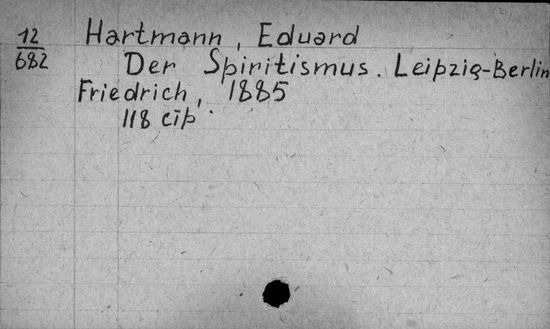 12
682
Hartmann, Eduard
Der Spiritismus. Leipzig-Berlin
Friedrich, 1885
118 cīp.